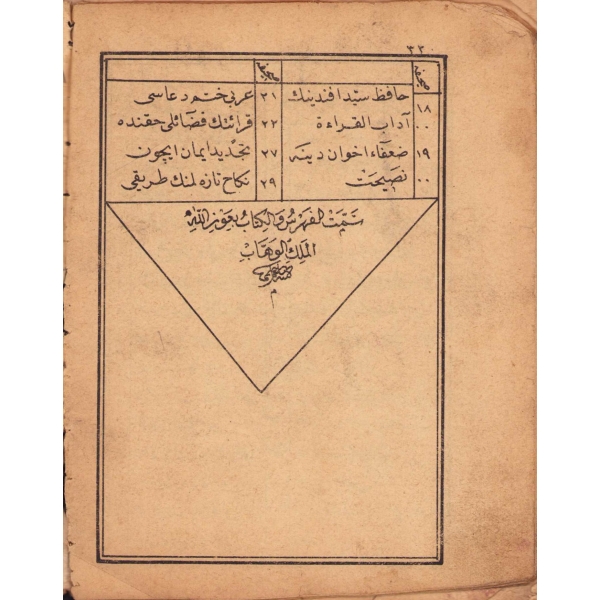 ٣٢
صحيفه
صحيفه
١٨ حافظ سيد افندينك
٠٠ آداب القراءة
١٩ ضعفاء اخوان دينه
٠٠ نصيحت
٢١ عربى ختم دعاسى
٢٢ قرائتك فضائلى حقنده
٢٧ تجديد ايمان ايچون
٢٩ نكاح تازه لمنك طريقى
تمت الفهرس والكتاب بعون الله
الملك الوهاب
م